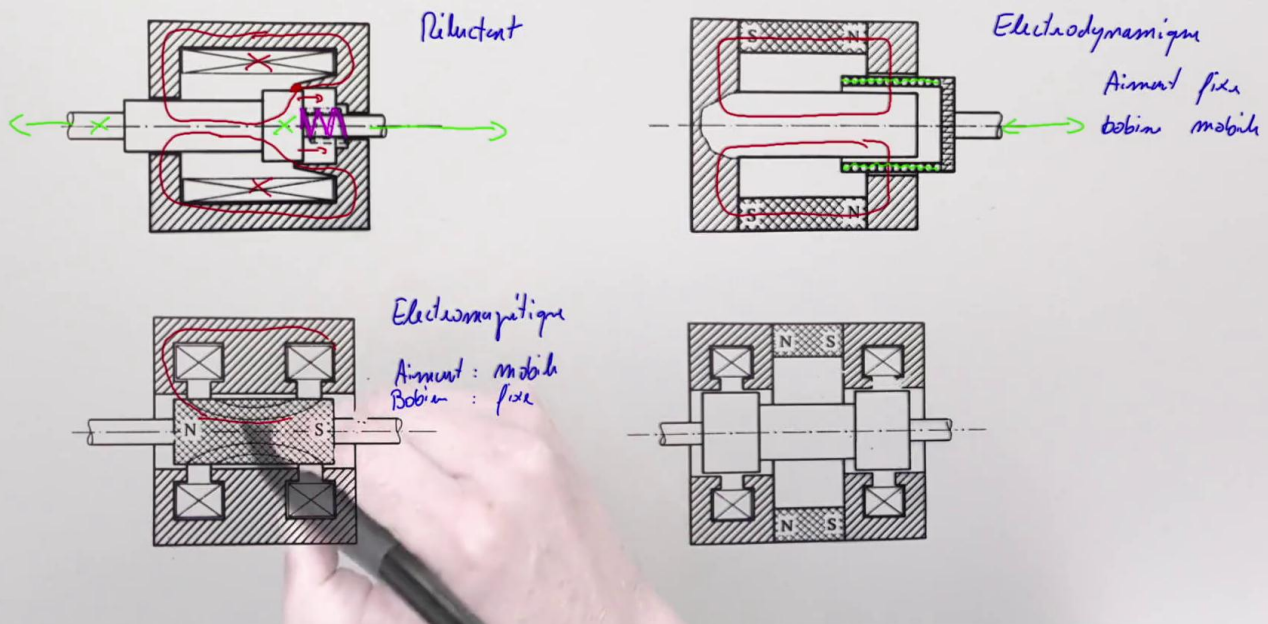 Réluctant
S N
S N
Electrodynamique
Aimant fixe
bobine mobile
Electromagnétique
Aimant : mobile
Bobine : fixe
N S
N S
N S